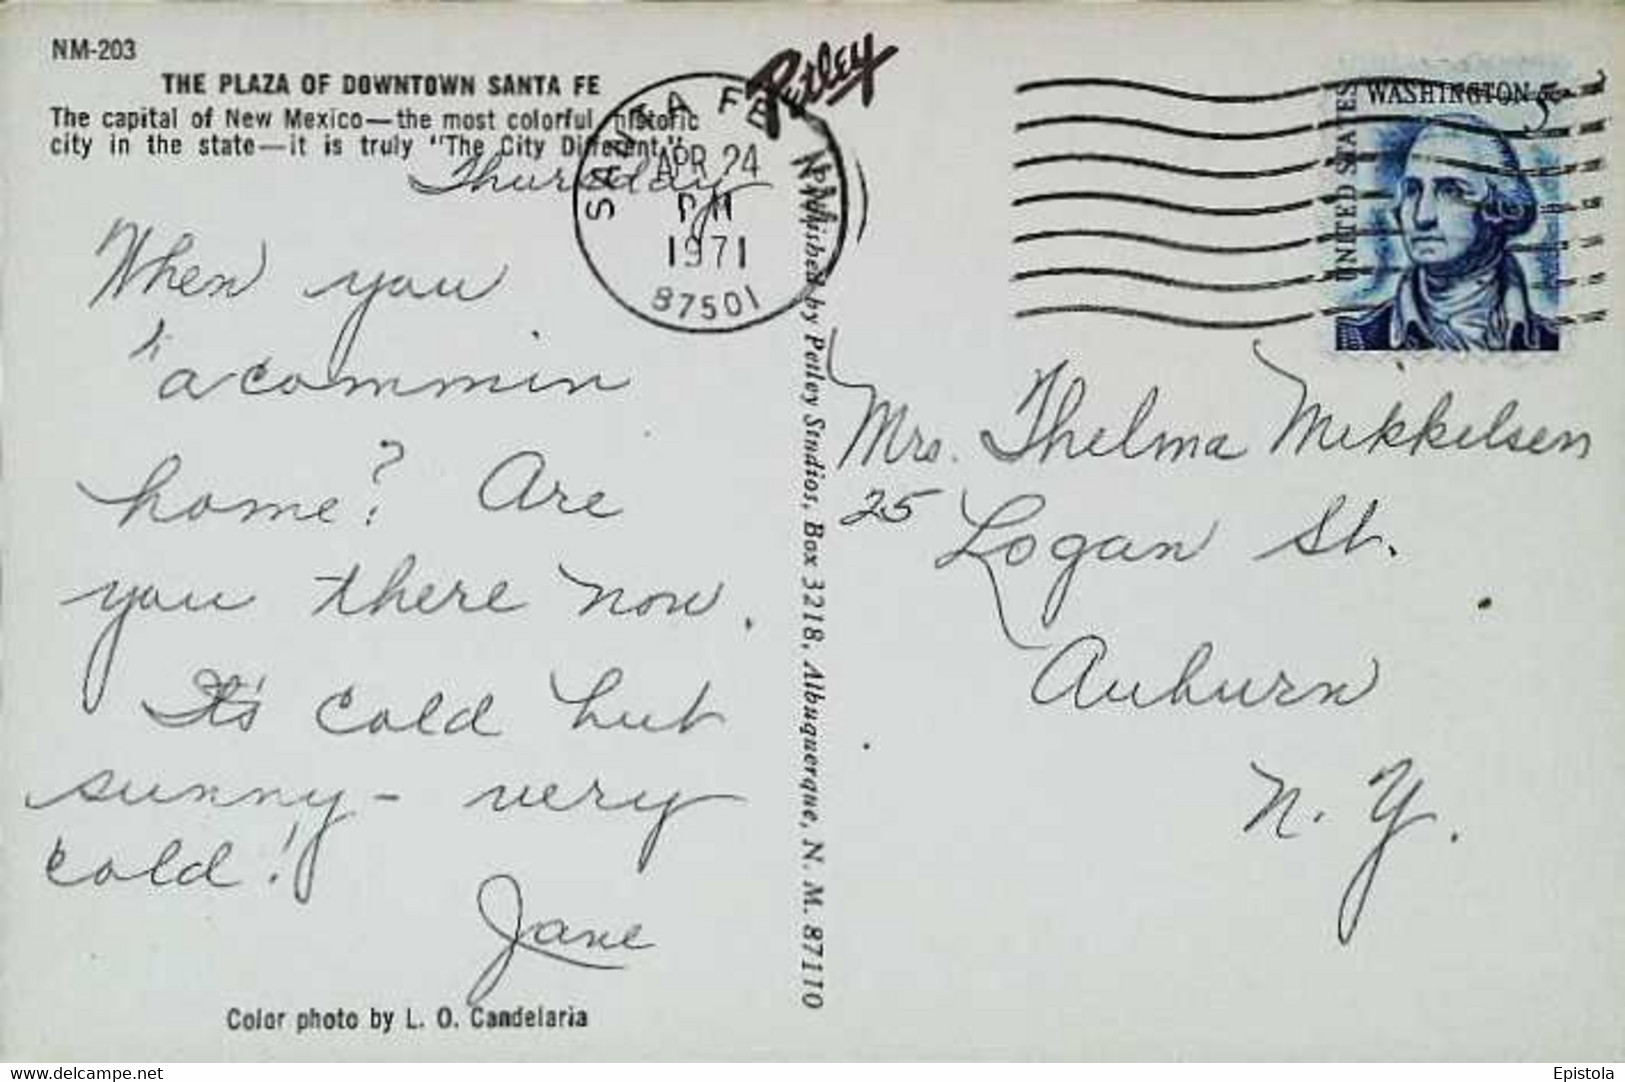 NM-203
THE PLAZA OF DOWNTOWN SANTA FE
The capital of New Mexico—the most colorful historic
city in the state—it is truly "The City Different."
Thursday
When you
"a commin
home? Are
you there now.
It's cold but
sunny - very
cold!
Jane
Color photo by L. O. Candelaria
Petley
Published by Petley Studios, Box 3218, Albuquerque, N. M. 87110
SANTA FE NM
APR 24
PM
1971
87501
UNITED STATES
WASHINGTON 5c
Mrs. Thelma Mikkelsen
25 Logan St.
Auburn
N. Y.
delcampe.net
Epistola